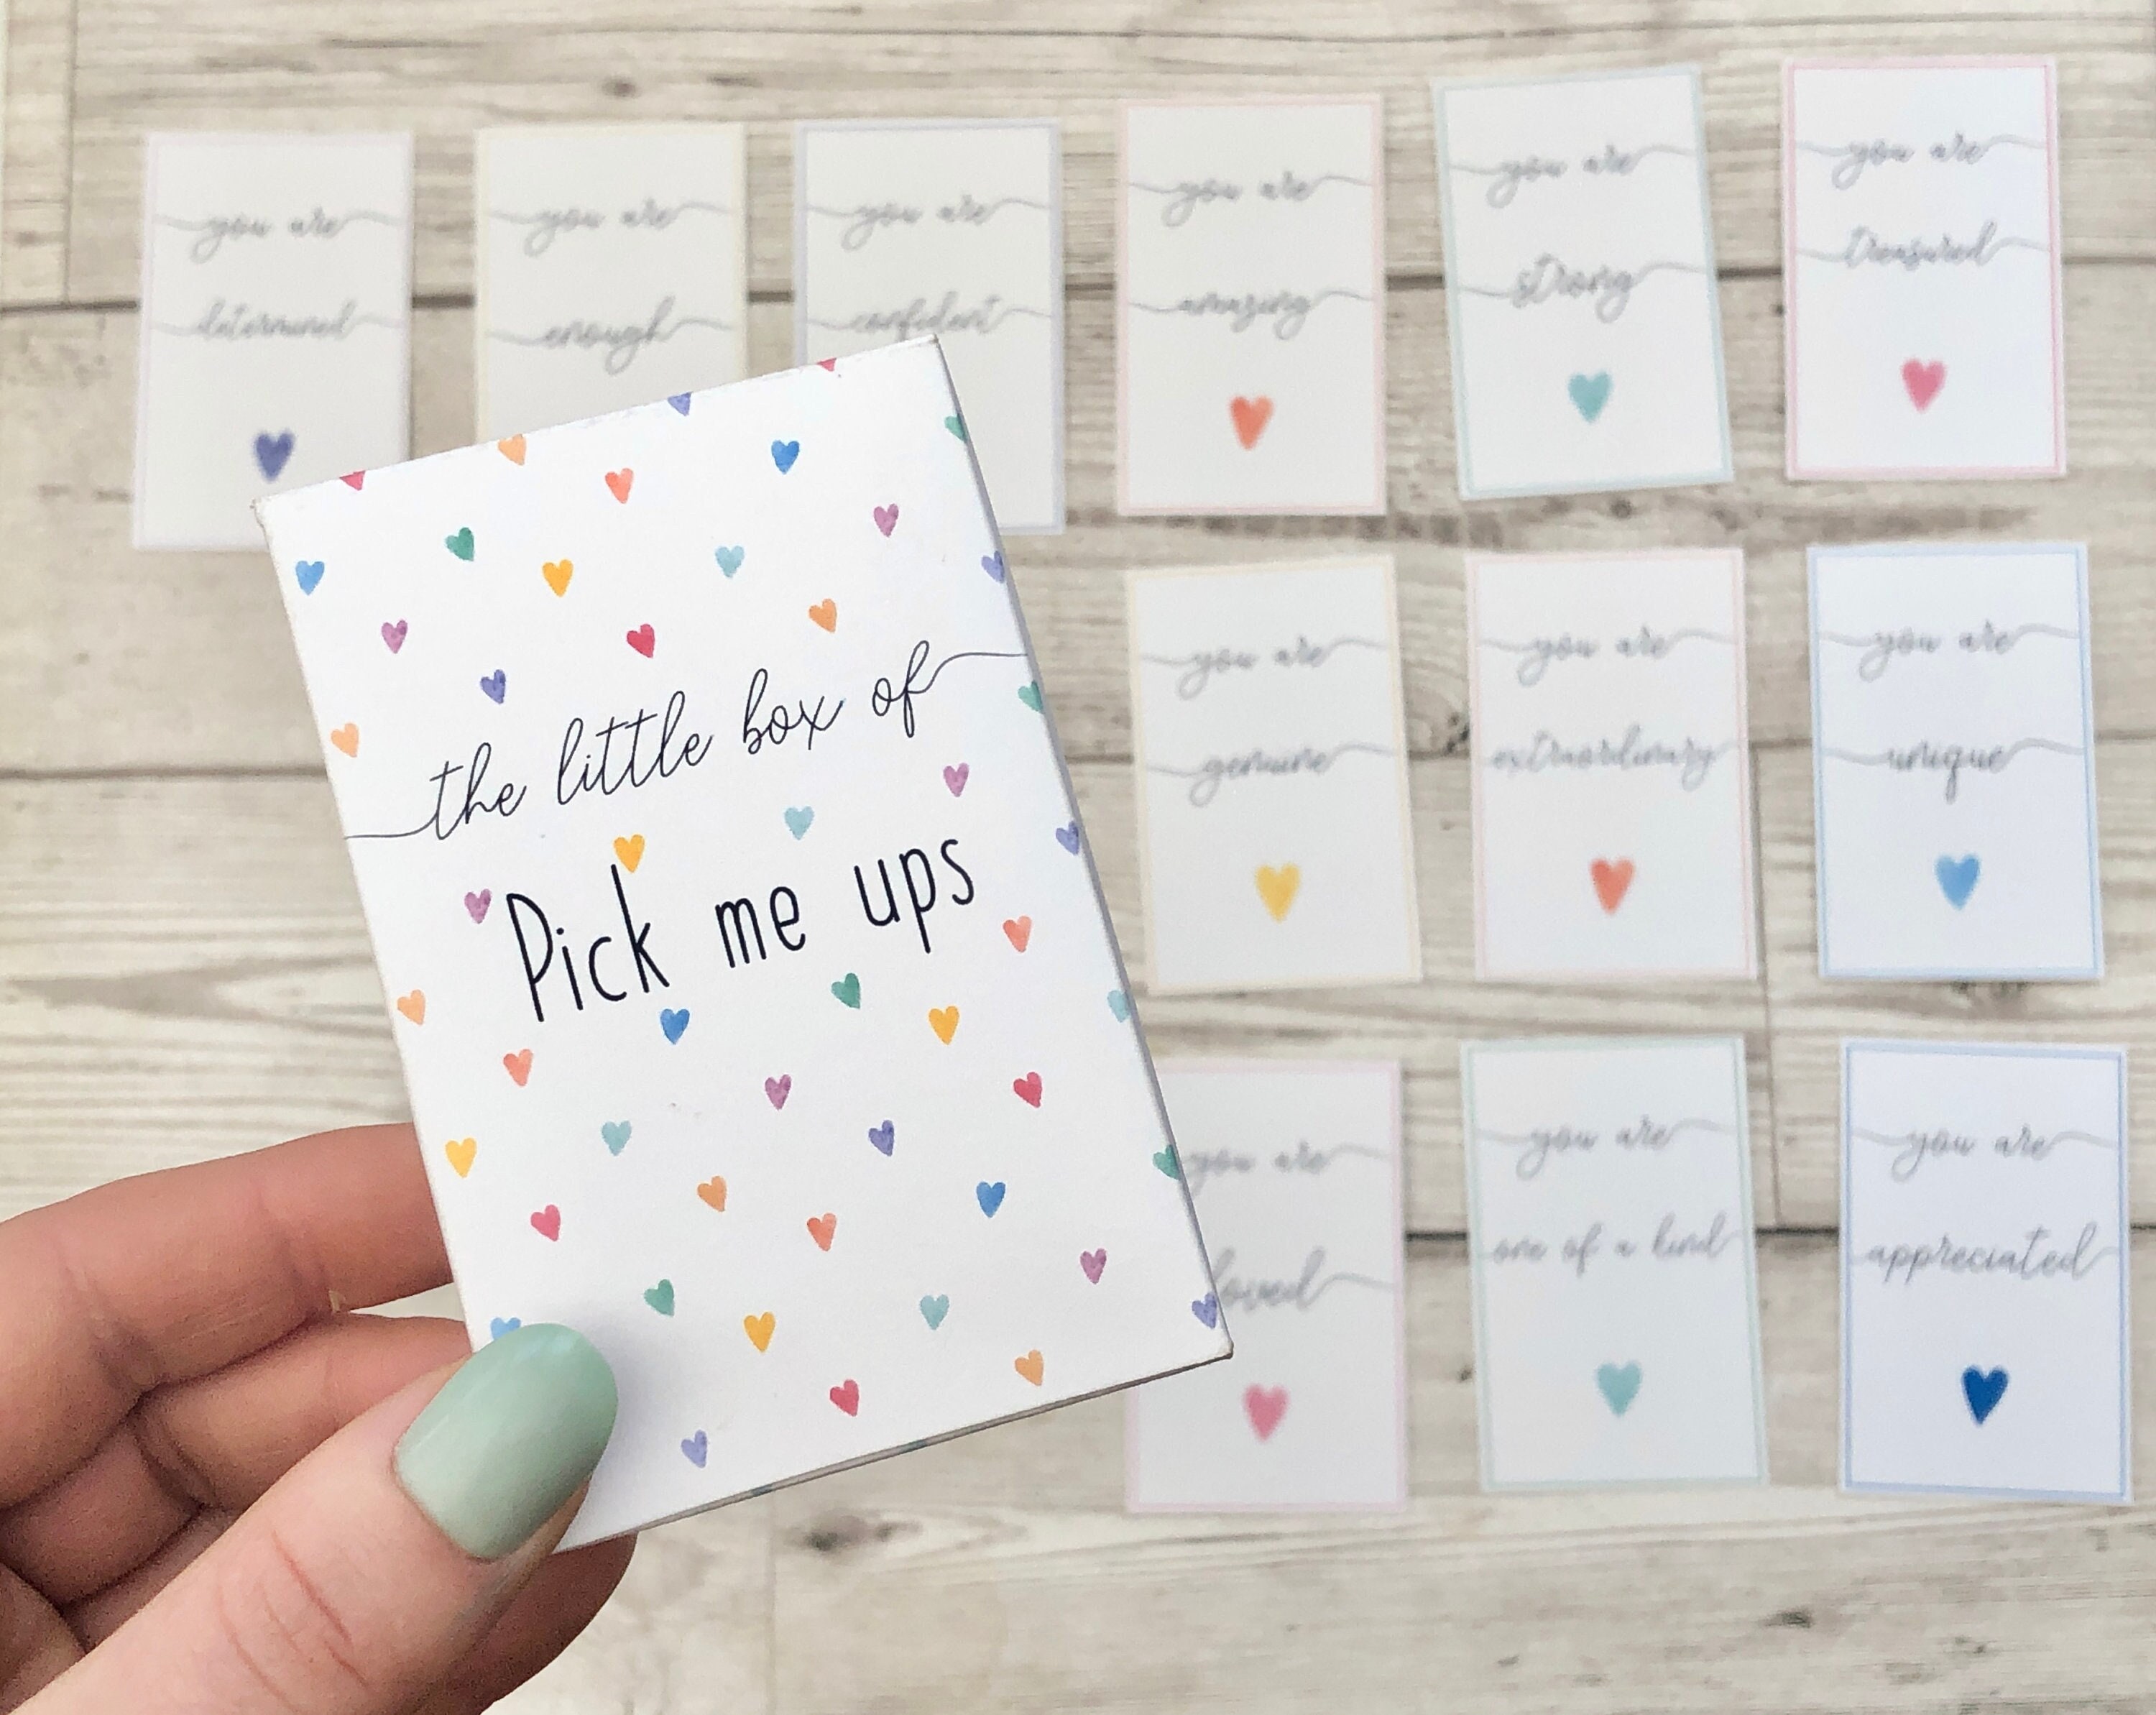 the little box of
Pick me ups
you are
determined
you are
enough
you are
confident
you are
amazing
you are
strong
you are
treasured
you are
genuine
you are
extraordinary
you are
unique
you are
loved
you are
one of a kind
you are
appreciated